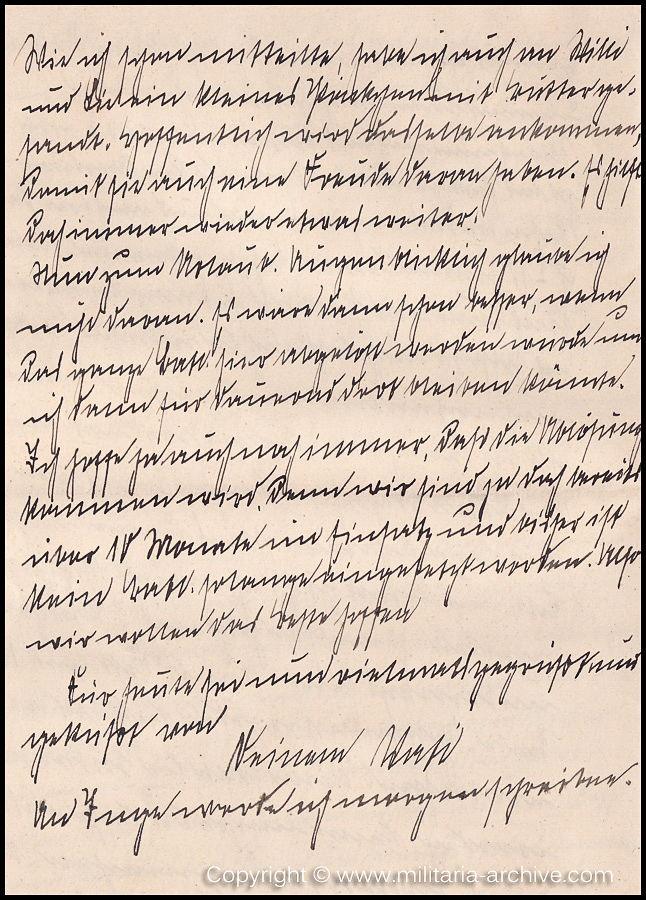 Wie ich schon mitteilte, habe ich auch an Willi
und Lie ein kleines Päckchen mit Butter ge-
sandt. Hoffentlich wird dasselbe ankommen,
damit sie auch eine Freude daran haben. Es hilft
doch immer wieder etwas weiter.
Nun zum Urlaub. Augenblicklich glaube ich
nicht daran. Es wäre dann schon besser, wenn
das ganze Batl. hier abgelöst werden würde und
ich dann für dauernd dort bleiben könnte.
Ich hoffe ja auch noch immer, daß die Ablösung
kommen wird. Denn wir sind ja doch bereits
über 10 Monate im Einsatz und bisher ist
kein Batl. solange eingesetzt worden. Also
wir wollen das Beste hoffen
Für heute sei nun vielmals gegrüßt und
geküßt von
Deinem Vati
An Inge werde ich morgen schreiben.
Copyright © www.militaria-archive.com